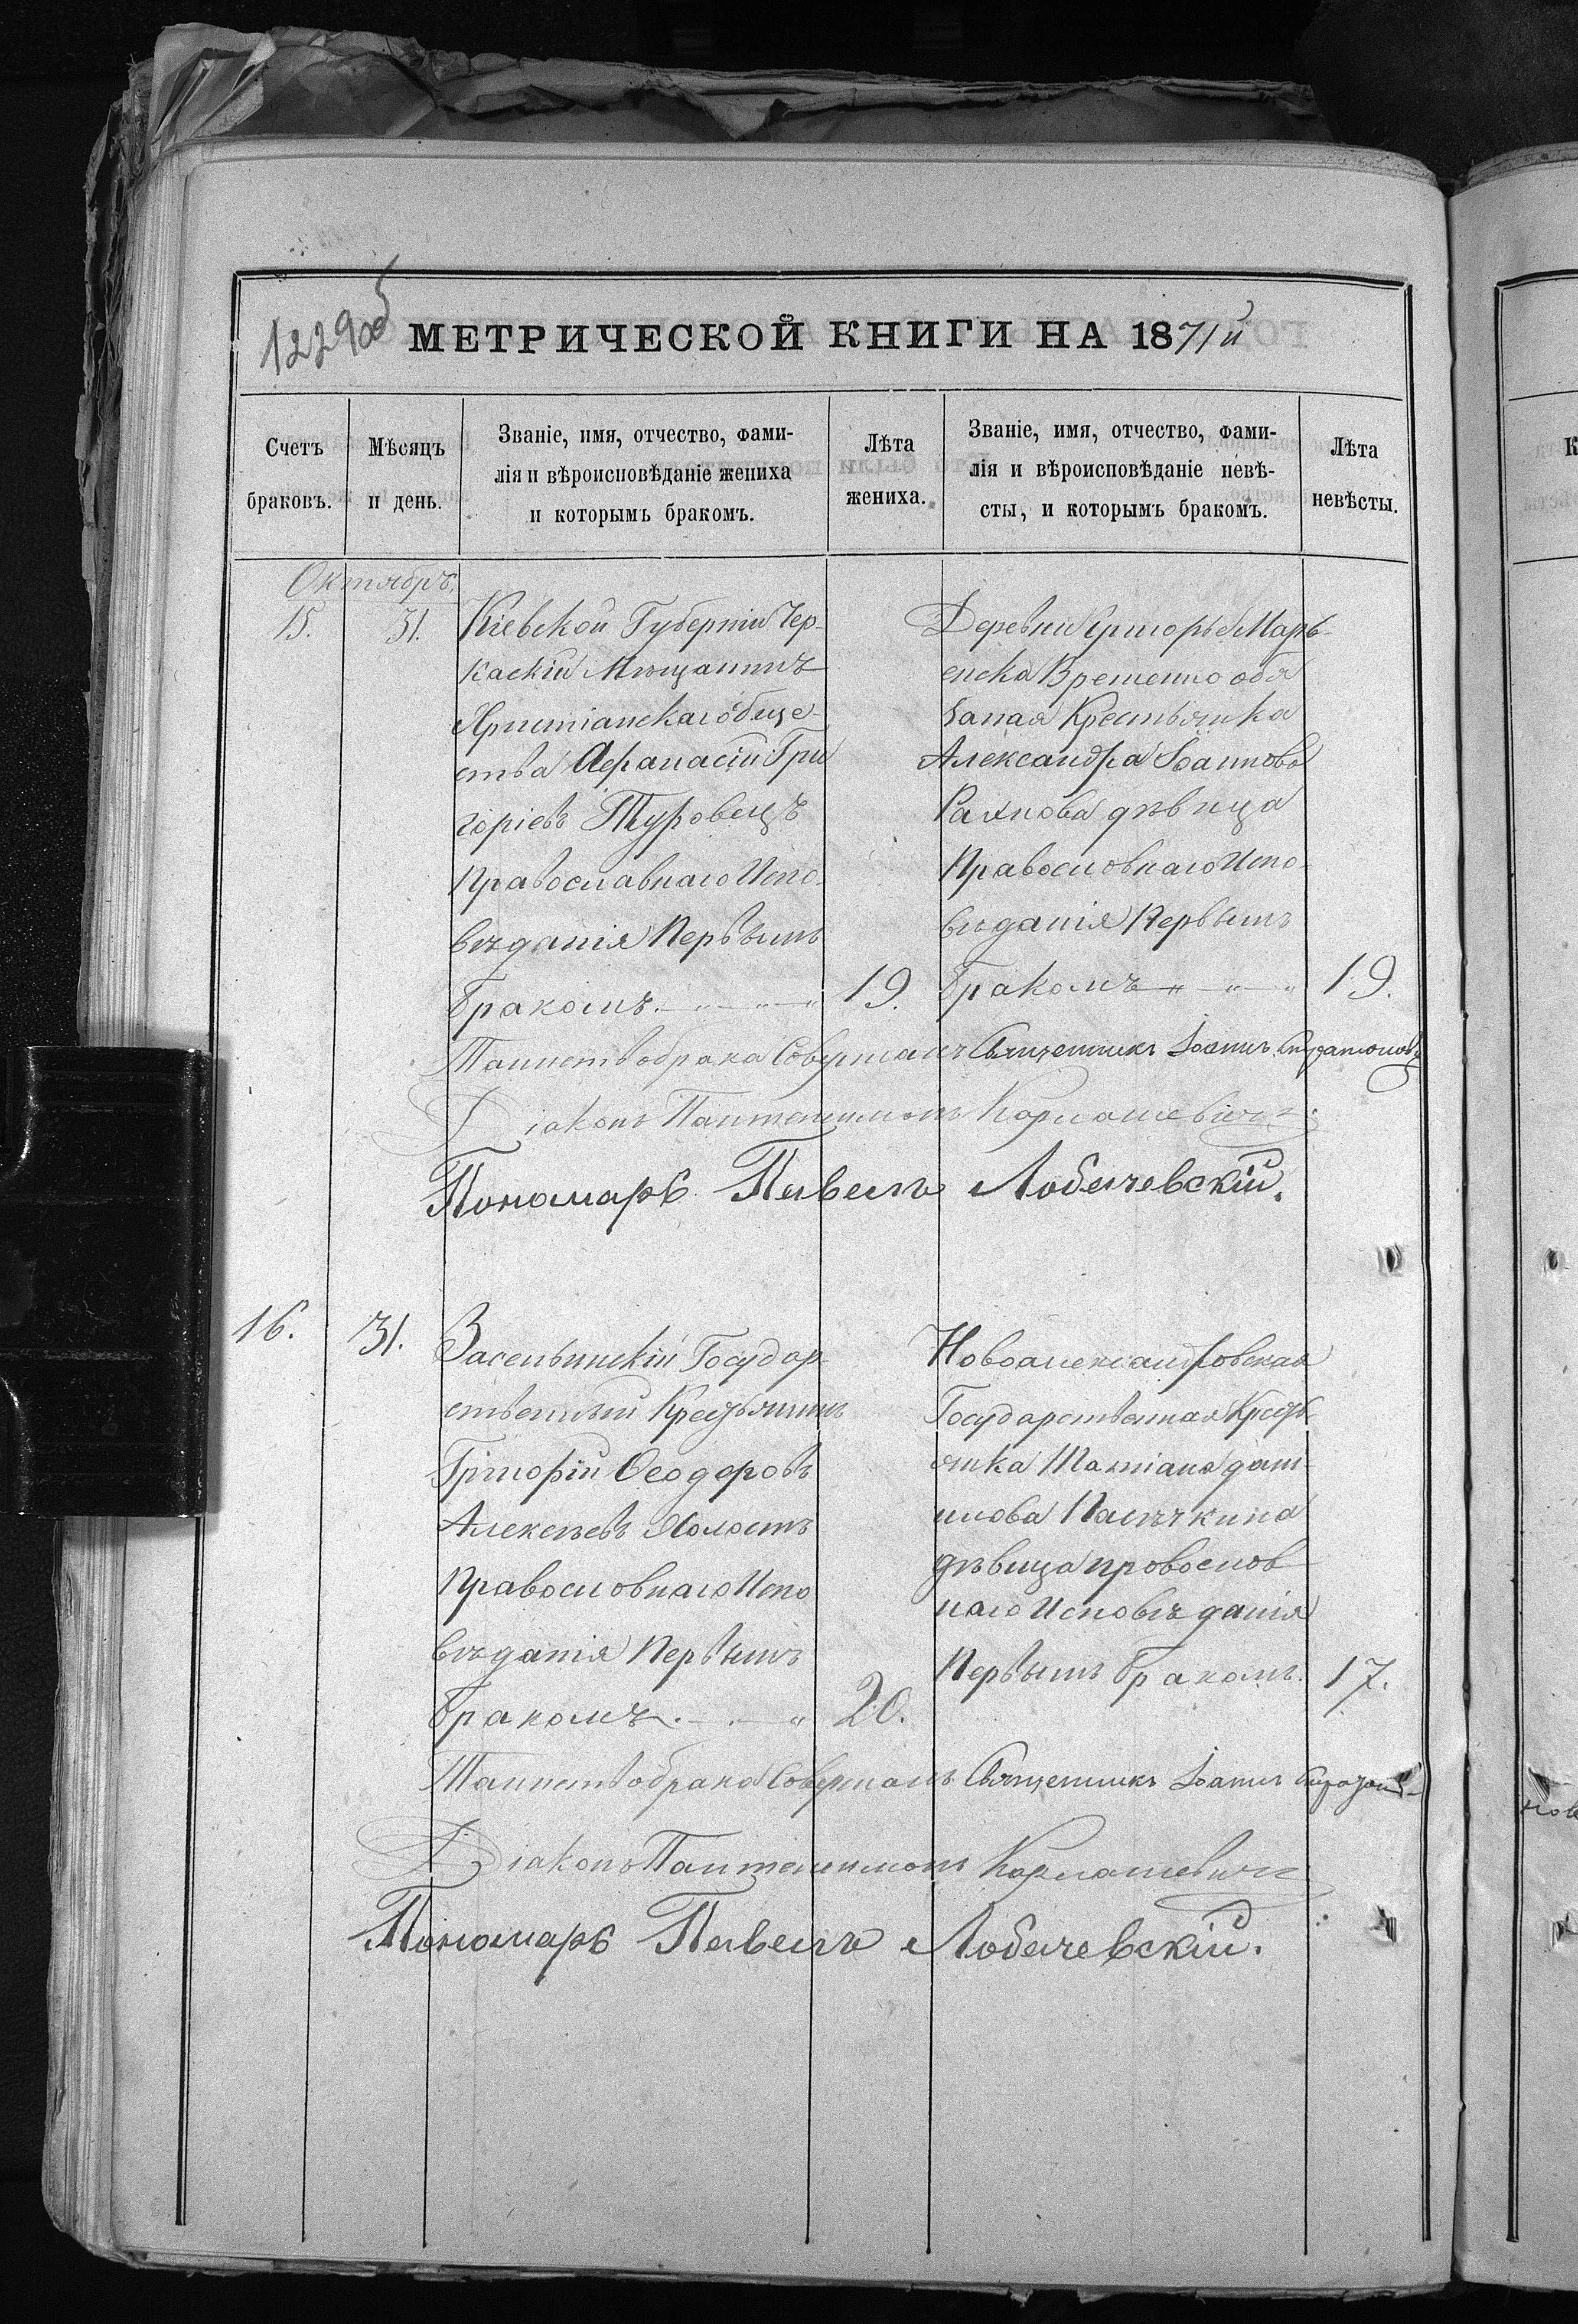 1229об
МЕТРИЧЕСКОЙ КНИГИ НА 1871й
Счетъ браковъ.
Мѣсяцъ и день.
Званіе, имя, отчество, фами-
лія и вѣроисповѣданіе жениха
и которымъ бракомъ.
Лѣта жениха.
Званіе, имя, отчество, фами-
лія и вѣроисповѣданіе невѣ-
сты, и которымъ бракомъ.
Лѣта невѣсты.
Октябрь.
15. 31.
Кіевской Губерніи Чер-
каскій Мѣщанинъ
Христіанскаго обще-
ства Афанасій Гри
горіевъ Туровецъ
Православнаго Испо-
вѣданія Первымъ
бракомъ. 19.
Деревни Марь-
енска Временно обя
заная Крестьянка
Александра Іоаннова
Рахнова дѣвица
Православнаго Испо-
вѣданія Первымъ
бракомъ 19.
Таинство брака Совершалъ Священникъ Іоаннъ
Діаконъ Пантелимонъ Кармашевичъ
Пономарь Павелъ Лобачевскій.
16. 31.
Засельинскій Государ-
ственный Крестьянинъ
Григорій Ѳеодоровъ
Алексѣевъ Холостъ
Православнаго Испо
вѣданія Первымъ
бракомъ. 20.
Новоалександровская
Государственная Кресть
янка Татіана Дани-
илова
дѣвица православ
наго Исповѣданія
Первымъ бракомъ. 17.
Таинство брака Совершалъ Священникъ Іоаннъ
Діаконъ Пантелимонъ Кармашевичъ
Пономарь Павелъ Лобачевскій.